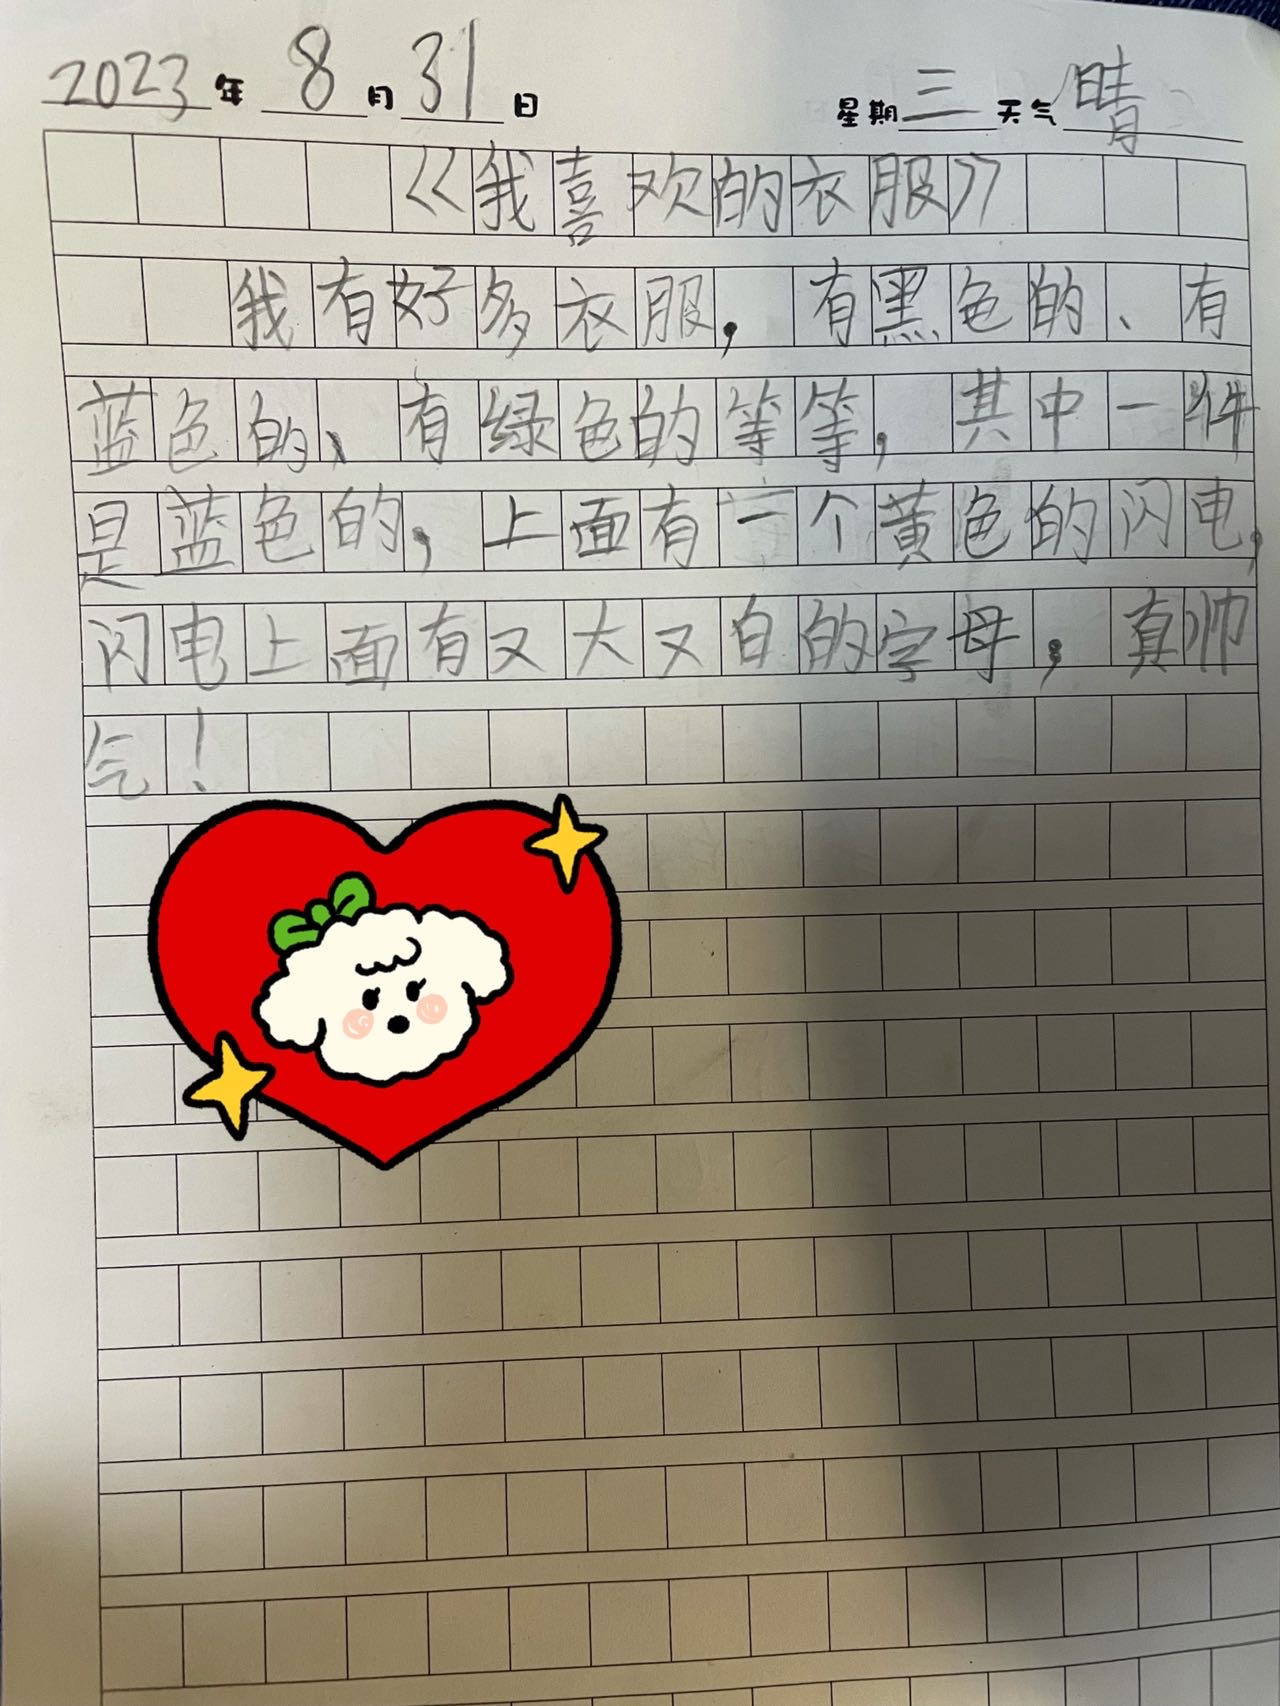 2023年8月31日 星期三 天气晴
《我喜欢的衣服》
我有好多衣服，有黑色的、有
蓝色的、有绿色的等等，其中一件
是蓝色的，上面有一个黄色的闪电，
闪电上面有又大又白的字母，真帅
气！